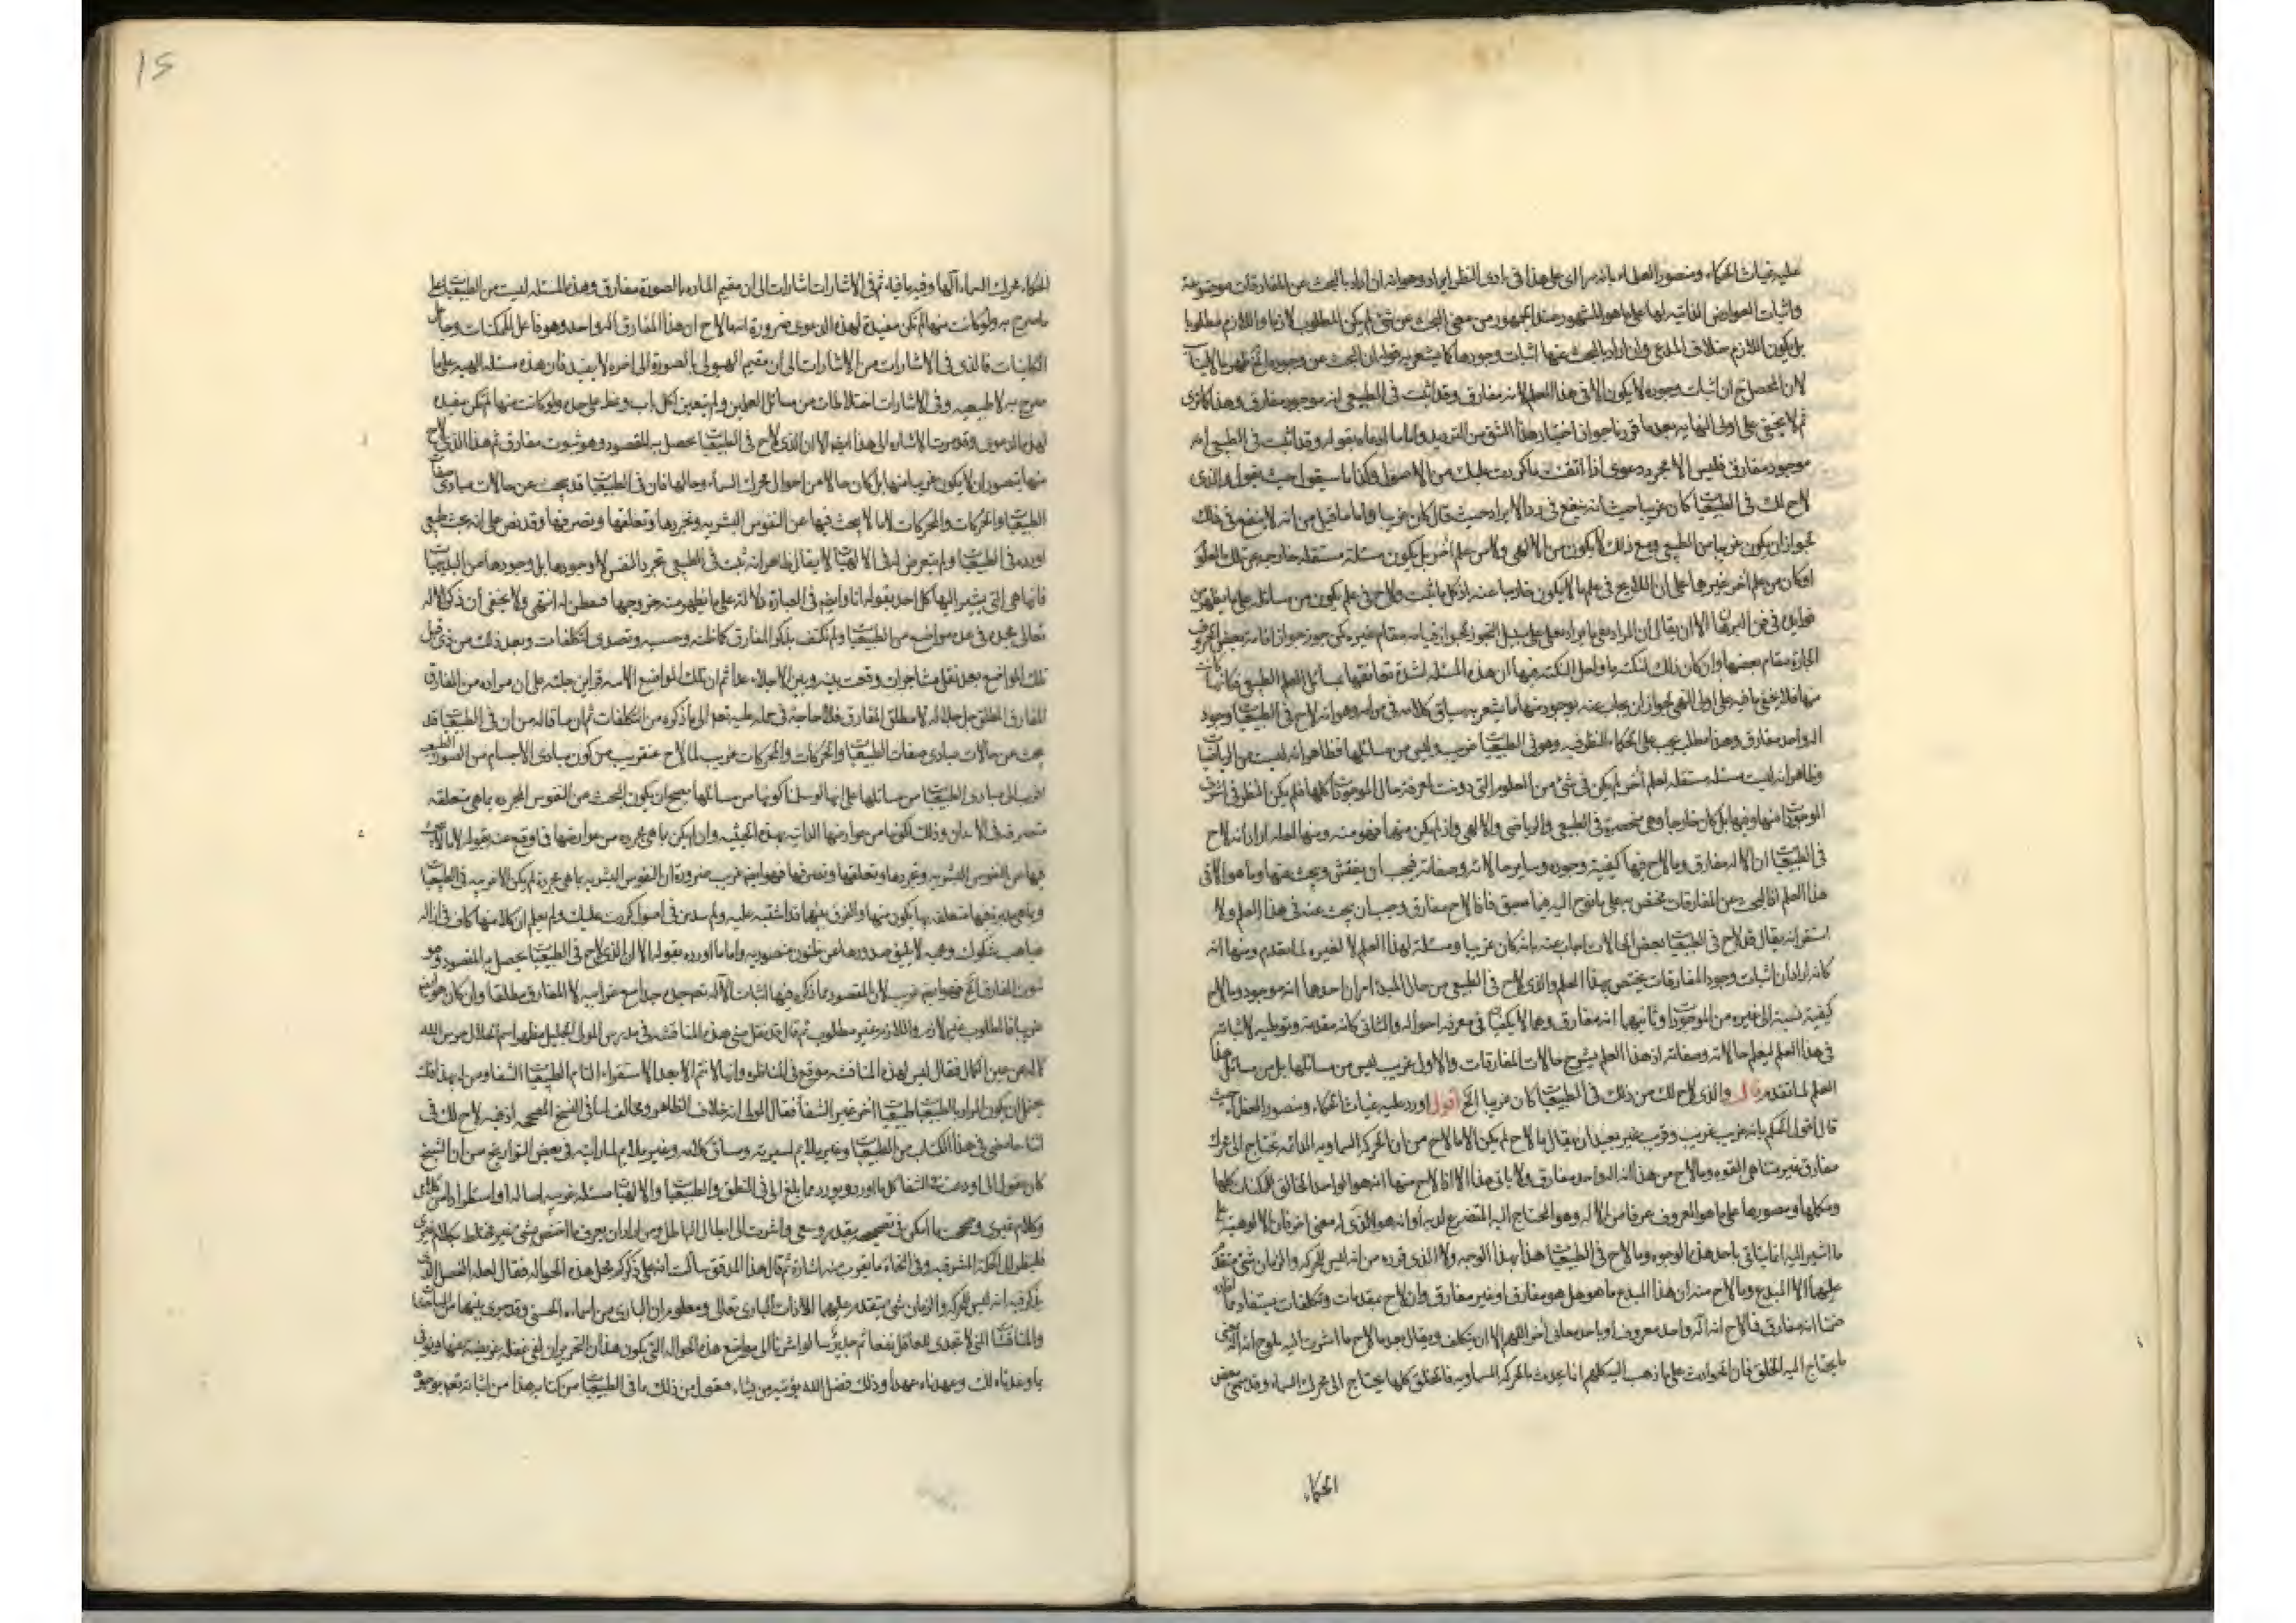 عليه غياث الحكماء ومنصور العلماء بانه يرا اى على هذا فى بادى النظر ايراد وجوابه ان اراد بالبحث عن المفارقات موضوعة
واثبات العوارض الذاتيه لها على ما هو المشهور عند الجمهور من معنى البحث عن شئ لم يكن المطلوب لازما واللازم مطلوبا
بل يكون اللازم خلاف المدعى وان اراد بالبحث عنها اثبات وجودها كما يشعر به قوله ان البحث عن وجوده
لان المحصل ح ان اثبات وجوده لا يكون الا فى هذا العلم لانه مفارق وقد اثبت فى الطبيعى انه موجود مفارق وهذا كما ترى
ثم لا يخفى على اولى النهايه بعد ما قررنا جواز اختيار هذا الشق من الترديد واما ما اورده بقوله وقد اثبت فى الطبيعى انه
موجود مفارق فليس الا مجرد دعوى اذا اتقنت ما كررت عليك من الاصول وكذا ما سيقول حيث يقول والذى
لاح لك فى الطبيعيات كان غريبا حيث انه ينفع فى رد الايراد حيث قال كان غريبا واما ما قيل من انه لا ينفع فى ذلك
لجواز ان يكون غريبا من الطبيعى ومع ذلك لا يكون من الالهى ولا من علم آخر بل يكون مسئلة مستقله خارجه عن تلك العلوم
او كان من علم آخر غيرها على ان اللايح فى علم ما لا يكون خارجا عنه اذ كل ما يثبت ولاح فى علم يكون من مسائله على ما يظهر من
فى فن البرهان الا ان يقال ان المراد
مقام بعضها وان كان ذلك لنكتة ما ولعل النكتة فيها ان هذه المسئله لشدة تعانقها بمسائل العلم الطبيعى فكانها كانت
منها فلا يخفى ما فيه على اولى النهى لجواز ان يجاب عنه بوجوه منها ما يشعر به سياق كلامه فى قوله وهو انه لاح فى الطبيعيات وجود
اله واحد مفارق وهذا مطلب يجب على الحكماء النظر فيه وهو فى الطبيعيات غريب وليس من مسائلها فظاهر انه ليست من الرياضيات
وظاهر انه ليست مسئله مستقله لعلم آخر لم يكن فى شئ من العلوم التى دونت لمعرفة حال الموجودات كلها فلم يكن النظر فى اشرف
الموجودات منها وفيها بل كان خارجا وهى منحصرة فى الطبيعى والرياضى والالهى واذ لم يكن منهما فهو منه ومنها لعله اراد انه لاح
فى الطبيعيات ان الاله مفارق وما لاح فيها كيفية وجوده وساير حالاته وصفاته فيجب ان يفتش ويبحث عنها وما هو الا فى
هذا العلم اذ البحث عن المفارقات مختص به على ما لوح اليه فيما سبق فاذا لاح مفارق وجب ان يبحث عنه فى هذا العلم ولا
يقال قد لاح فى الطبيعيات بعض الحالات اجاب عنه بانه كان غريبا ومسئلة لهذا العلم لا لغيره لما تقدم ومنها انه
كانه اراد ان اثبات وجود المفارقات يختص بهذا العلم والذى لاح فى الطبيعى من حال المبدء امران احدهما انه موجود وما لاح
كيفية نسبته الى غيره من الموجودات وثانيهما انه مفارق وهما لا يكفيان فى معرفة احواله والثانى كانه مقدمة وتوطية لاثباته
فى هذا العلم ليعلم حالاته وصفاته اذ هذا العلم يشرح حالات المفارقات والاول غريب ليس من مسائلها بل من مسائل هذا
العلم لما تقدم قال والذى لاح لك من ذلك فى الطبيعيات كان غريبا الخ اقول اورد عليه غياث الحكماء ومنصور العقلاء حيث
قال اقول الحكم بانه غريب غريب وقريب غير بعيد ان يقال ما لاح لم يكن الا ما لاح من ان الحركة السماويه الدائمه تحتاج الى محرك
مفارق غير متناهى القوه وما لاح من هذا انه اله واحد مفارق ولا ياتى هذا الا اذا لاح منها انه هو الواحد الخالق للممكنات كلها
ومشكلها ومصورها على ما هو المعروف عرفا من الاله وهو المحتاج اليه المتضرع لديه او انه هو الذى له معنى اخر فان الالوهية على
ما اشير اليه انما ياتى باحد هذه الوجوه وما لاح فى الطبيعيات هذا بهذا الوجه ولا الذى قرره من انه ليس للحركة والزمان شئ متقدم
عليهما الا المبدع وما لاح منه ان هذا المبدع ما هو هل هو مفارق او غير مفارق وان لاح بمقدمات وتكلفات يستفاد
ضمنا انه مفارق فما لاح انه اله واحد معروف او باحد معانى اخر اللهم الا ان يتكلف ويقال بعد ما لاح ما اشرت اليه يلوح انه اله بمعنى
ما يحتاج اليه الخلق فان الحوادث على ما ذهب اليه كلهم انما يحدث بالحركة السماويه فالخلق كلها يحتاج الى محرك السماء وقد سمى بعض
الحكماء
الحكماء محرك السماء آلها وفيه ما فيه ثم فى الاشارات اشارات الى ان مقيم الماده بالصورة مفارق وهذه المسئله ليست من الطبيعيات على
ما صرح به ولو كانت منها لم تكن مفيدة لهذه الدعوى ضرورة انه ما لاح ان هذا المفارق اله واحد وهو فاعل الممكنات وجاعل
الكليات فالذى فى الاشارات من الاشارات الى ان مقيم الهيولى بالصورة الى اخره لا يفيد فان هذه مسئله الهيه على ما
صرح به لا طبيعيه وفى الاشارات اختلاطات من مسائل العلمين ولم يتعين لكل باب وخط على حده ولو كانت منها لم تكن مفيده
لهذه الدعوى وقد مرت الاشاره الى هذا ايضا الا ان الذى لاح فى الطبيعيات يحصل به المقصود وهو ثبوت مفارق ثم هذا الذى لاح
منها يتصور ان لا يكون غريبا منها بل كان حالا من احوال محرك السماء وحالها فان فى الطبيعيات قد يبحث عن حالات مبادى صفات
الطبيعيات والحركات والمحركات لاما لا يبحث فيها عن النفوس البشريه وتجردها وتعلقها وتصرفها وقد نص على انه بحث طبيعى
اورده فى الطبيعيات ولم يتعرض له فى الالهيات لا يقال ظاهر انه ثبت فى الطبيعى تجرد النفس لا وجودها بل وجودها من البديهيات
فانها هى التى يشير اليها كل احد بقوله انا وايضا فى العبارة دلالة على ما يظهر منه خروجها فتفطن له انتهى ولا يخفى ان ذكر الاله
تعالى مجده فى عده مواضع من الطبيعيات ولم يكتف بذكر المفارق كما ظنه وحسبه وتصدى لتكلفات وبعد ذلك من ذى قبل
تلك المواضع بعد نقل مشاجرات وقعت بينه وبين الاجلاء عدا ثم ان تلك المواضع الاسه قراين جليه على ان مراده من المفارق
المفارق المطلق جل جلاله لا مطلق المفارق فلا حاجة فى حمله عليه تعالى الى ما ذكره من التكلفات ثم ان ما قاله من ان فى الطبيعيات قد
يبحث من حالات مبادى صفات الطبيعيات والحركات والمحركات غريب لما لاح عنقريب من كون مبادى الاجسام من الصور الطبيعيه
مبادى الطبيعيات من مسائلها على انها لو سلمنا كونها من مسائلها يصح ان يكون البحث من النفوس المجرده بما هى متعلقه
متصرفه فى الابدان وذلك لكونها من عوارضها الذاتيه بهذه الحيثيه وان لم يكن بما هى مجرده من عوارضها فما وقع عنه بقوله لاما لا يبحث
فيها عن النفوس البشريه وتجردها وتعلقها وتصرفها فهو ايضا غريب ضرورة ان النفوس البشريه بما هى مجردة لم يكن الا غريبه فى الطبيعيات
وبما هى مدبره فيها متعلقه بها يكون منها والفرق بينهما قد اشتبه عليه ولم سدس فى اصول كررت عليك ولم يعلم ان كلامنها كاف فى ازاله
غياهب شكوك وهميه لا يليق صدورها عن ظنون منصوريه واما ما اورده بقوله الا ان الذى لاح فى الطبيعيات يحصل به المقصود وهو
ثبوت المفارق الخ فهو ايضا غريب لان المقصود مما ذكره فيها اثبات الاله مع غرابيه لا المفارق مطلقا وان كان هو ايضا
غريبا فالمطلوب غير لازم واللازم غير مطلوب ثم قال قد نقل منى هذه المناقشه فى مدرس المولى الجليل
فقال ليس لهذه المناقشه موقع فى المناظره وانها لا تتم الا بعد الاستقراء التام لطبيعيات الشفا ومن اين
يحتمل ان يكون المراد بالطبيعيات طبيعيات اخر غير الشفا فقال المولى انه خلاف الظاهر ومخالف لما فى النسخ المصححه اذ فيه لاح لك فى
اثناء ما مضى فى هذا الكتاب من الطبيعيات وغير ملايم لسيرته وسياق كلامه وغير ملايم لما رايته فى بعض التواريخ من ان الشيخ
كان يقول انى اوردت فى الشفا كل ما اورد ويورد مما بلغ الى فى المنطق والطبيعيات والالهيات مسئله غريبه اصاله او استطرادا من كلامى
وكلام غيرى وصححت ما امكن فى تصحيحه بقدر وسعى واشرت الى ابطال الباطل ومن اراد ان يعرف ما اختص بشئ غير مختلط بكلام غيرى
فلينظر الى الحكمة المشرقيه وفى النجاة ما يقرب منه اشارة ثم قال هذا المدقق سالت انه هل تذكر كم محل هذه الحواله فقال لعله الفصل الذى
يذكر فيه انه ليس للحركة والزمان شئ يتقدم عليهما الا ذات البارى تعالى ومعلوم ان البارى من اسماء الحسنى وقد جرى بينهما من المباحثات
والمناقشات التى لا تجدى للعاقل نفعا ثم جدير بنا لو اشرنا الى مواضع هذه الحواله التى يكون هذان النحريران لفى غفله عريضة عنها ونوفى
بما وعدناه لك وعهدناه عهدا وذلك فضل الله يؤتيه من يشاء فنقول من ذلك ما فى الطبيعيات من كتابه هذا من اثباته تعم بوجوه
15